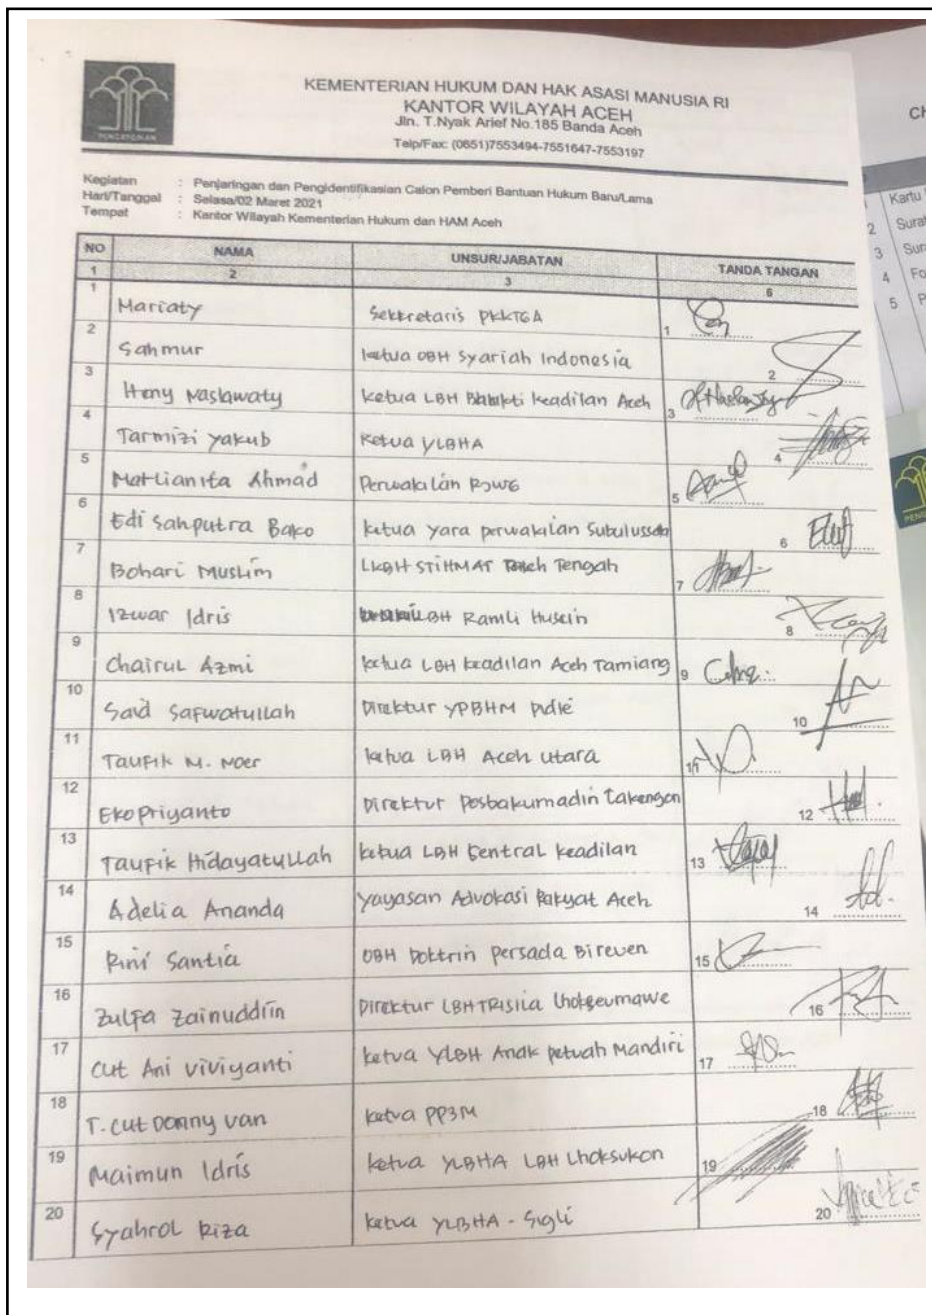 KEMENTERIAN HUKUM DAN HAK ASASI MANUSIA RI
KANTOR WILAYAH ACEH
Jln. T.Nyak Arief No.185 Banda Aceh
Telp/Fax: (0651)7553494-7551647-7553197
PENGAYOMAN
Kegiatan : Penjaringan dan Pengidentifikasian Calon Pemberi Bantuan Hukum Baru/Lama
Hari/Tanggal : Selasa/02 Maret 2021
Tempat : Kantor Wilayah Kementerian Hukum dan HAM Aceh
NO NAMA UNSUR/JABATAN TANDA TANGAN
1 2 3 6
1 Mariaty Sekretaris PKKTGA 1
2 Sahmur ketua OBH Syariah Indonesia 2
3 Heny Naslawaty ketua LBH Bhakti keadilan Aceh 3
4 Tarmizi Yakub Ketua YLBHA 4
5 Matlianita Ahmad Perwakilan RJWG 5
6 Edi Sahputra Bako ketua yara perwakilan Subulussalam 6
7 Bohari Muslim LKBH STIHMAT Aceh Tengah 7
8 Izwar Idris LBH Ramli Husein 8
9 Chairul Azmi ketua LBH keadilan Aceh Tamiang 9
10 Said Safwatullah Direktur YPBHM Pidie 10
11 Taufik M. Noer ketua LBH Aceh utara 11
12 Eko Priyanto Direktur Posbakumadin Takengon 12
13 Taufik Hidayatullah ketua LBH Sentral keadilan 13
14 Adelia Ananda Yayasan Advokasi Rakyat Aceh 14
15 Rini Santia OBH Doktrin Persada Bireuen 15
16 Zulfa Zainuddin Direktur LBH TRISILA Lhokseumawe 16
17 Cut Ani Viviyanti ketua YLBH Anak petuah Mandiri 17
18 T. Cut Donny Van ketua PP3M 18
19 Maimun Idris ketua YLBHA LBH Lhoksukon 19
20 Syahrol Riza ketua YLBHA - Sigli 20
Kartu
2 Surat
3
4 Fo
5 P